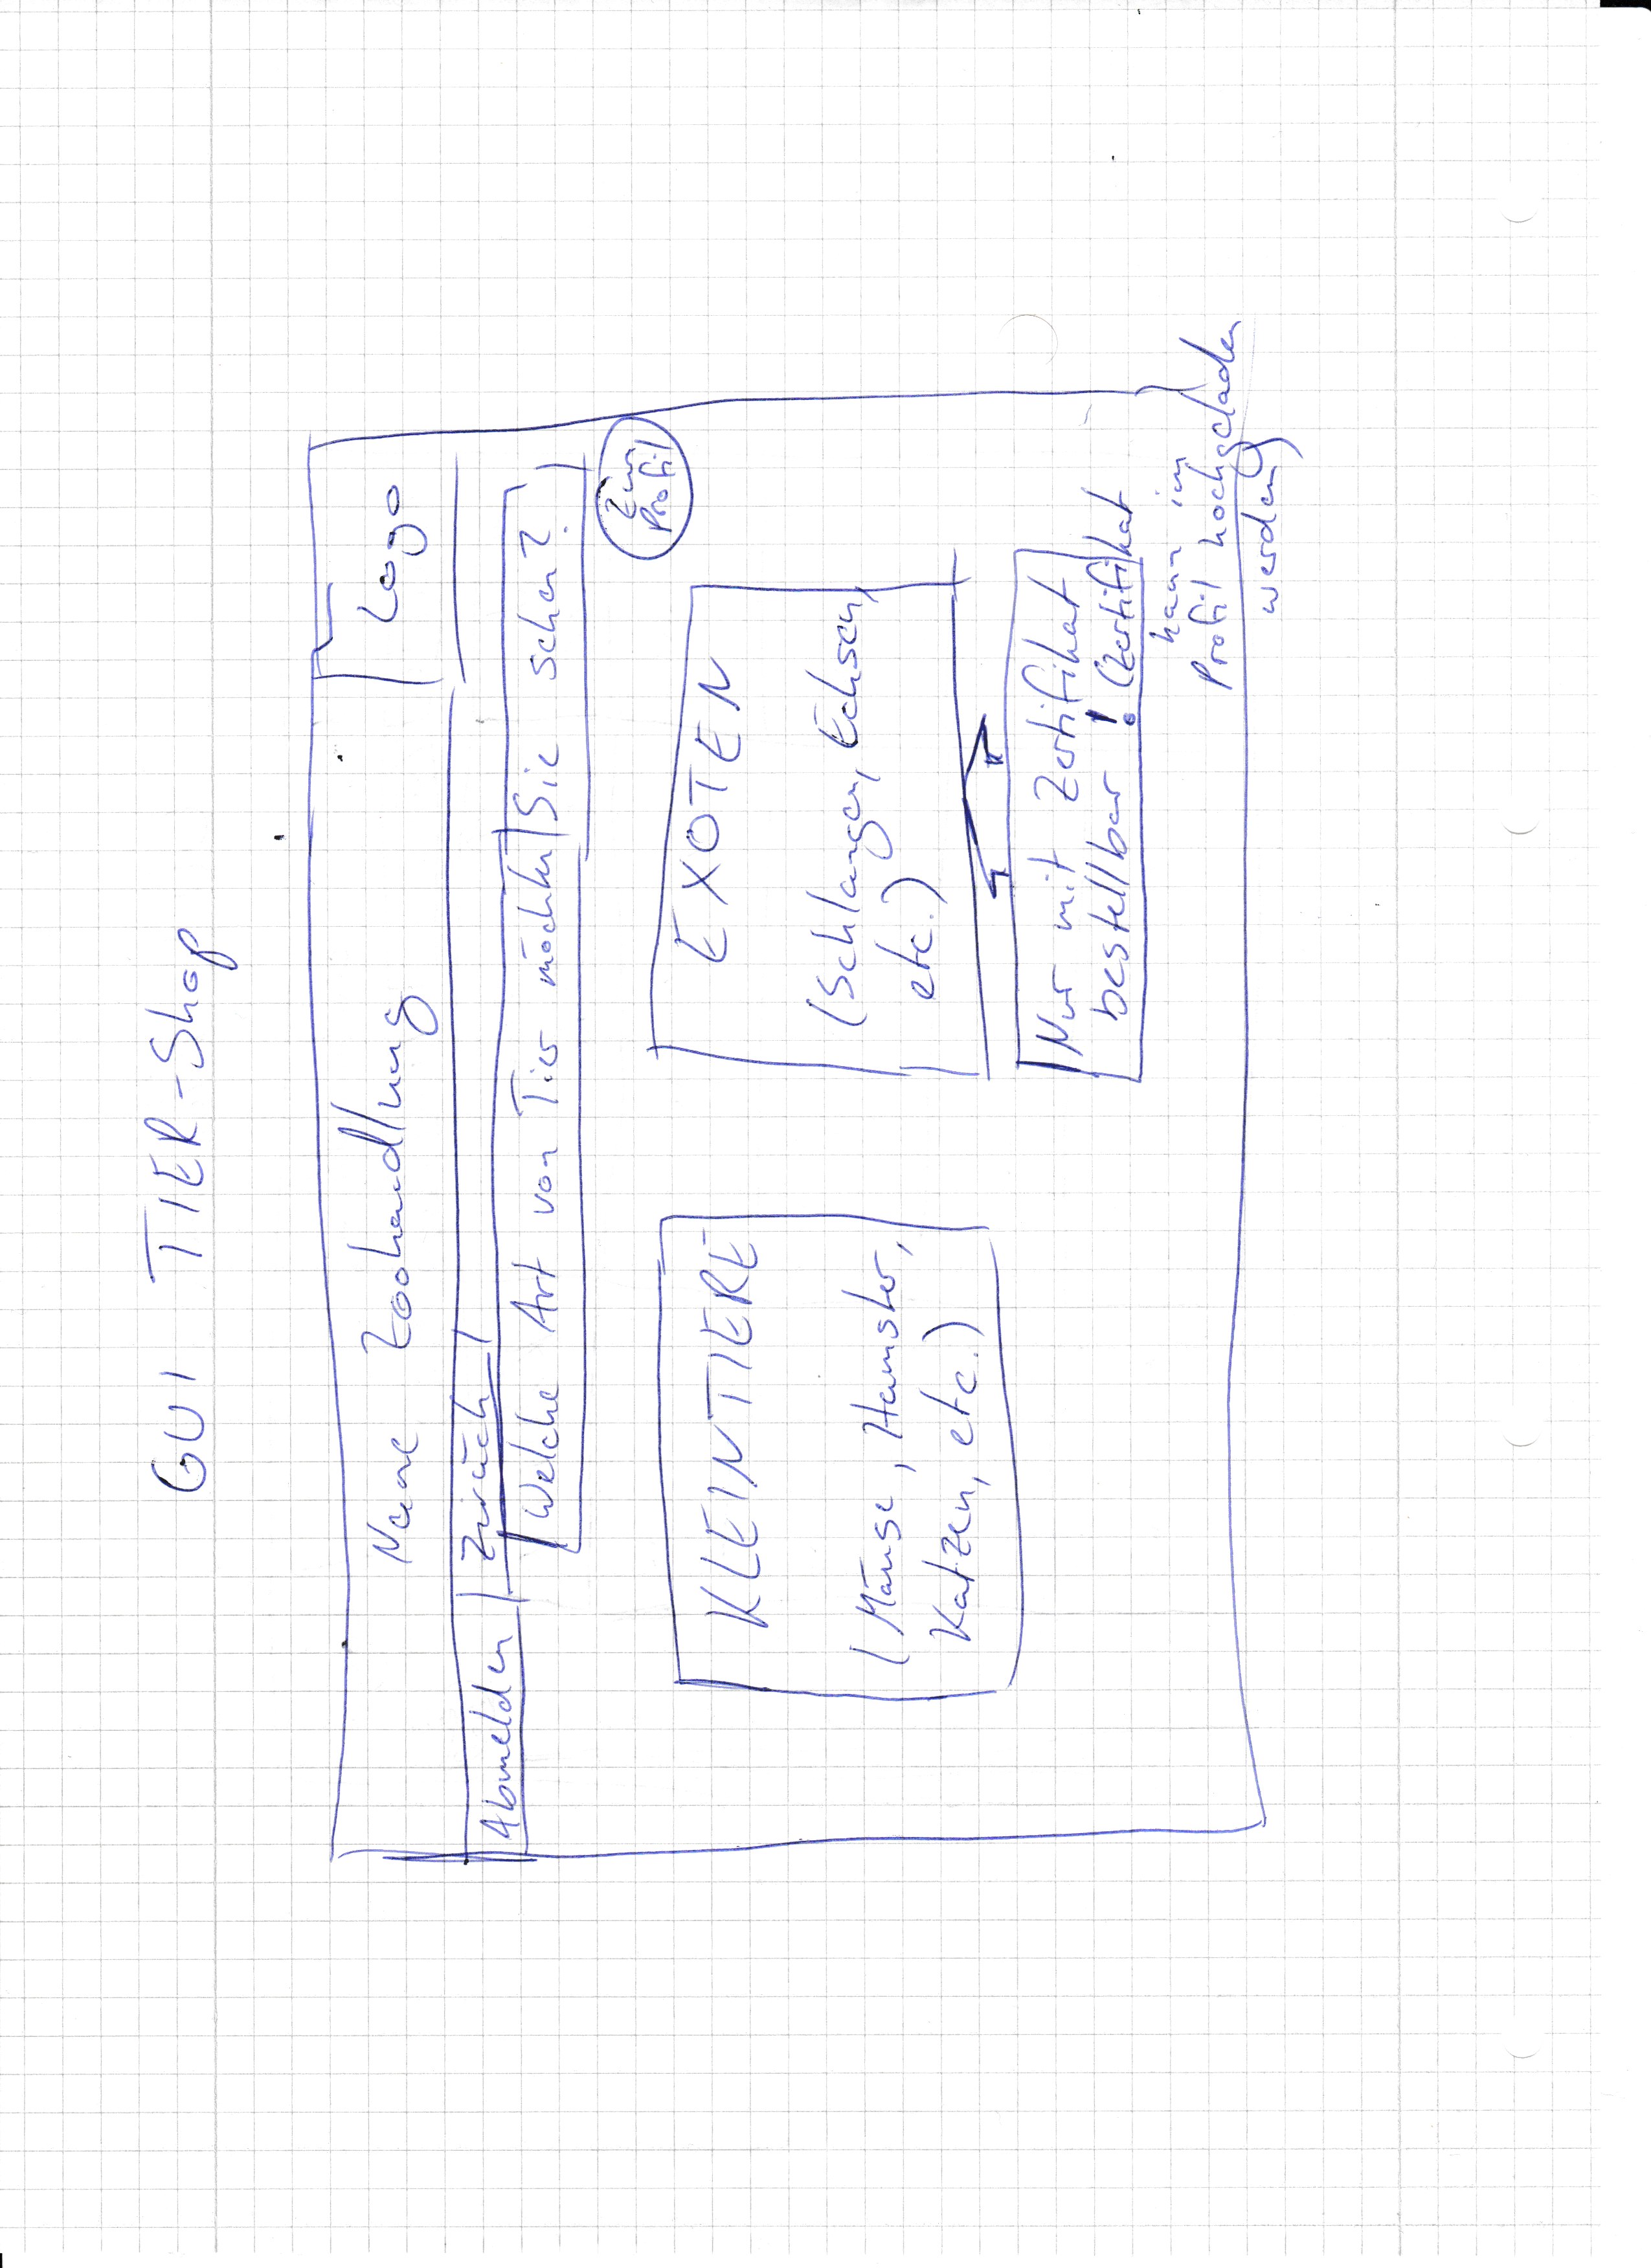 GUI TIER-Shop
Name Zoohandlung
Logo
Abmelden
Zurück
Welche Art von Tier möchten Sie sehen?
Zum
Profil
KLEINTIERE
(Mäuse, Hamster,
Katzen, etc.)
EXOTEN
(Schlangen, Echsen,
etc.)
Nur mit Zertifikat
bestellbar! (Zertifikat
kann im
Profil hochgeladen
werden)